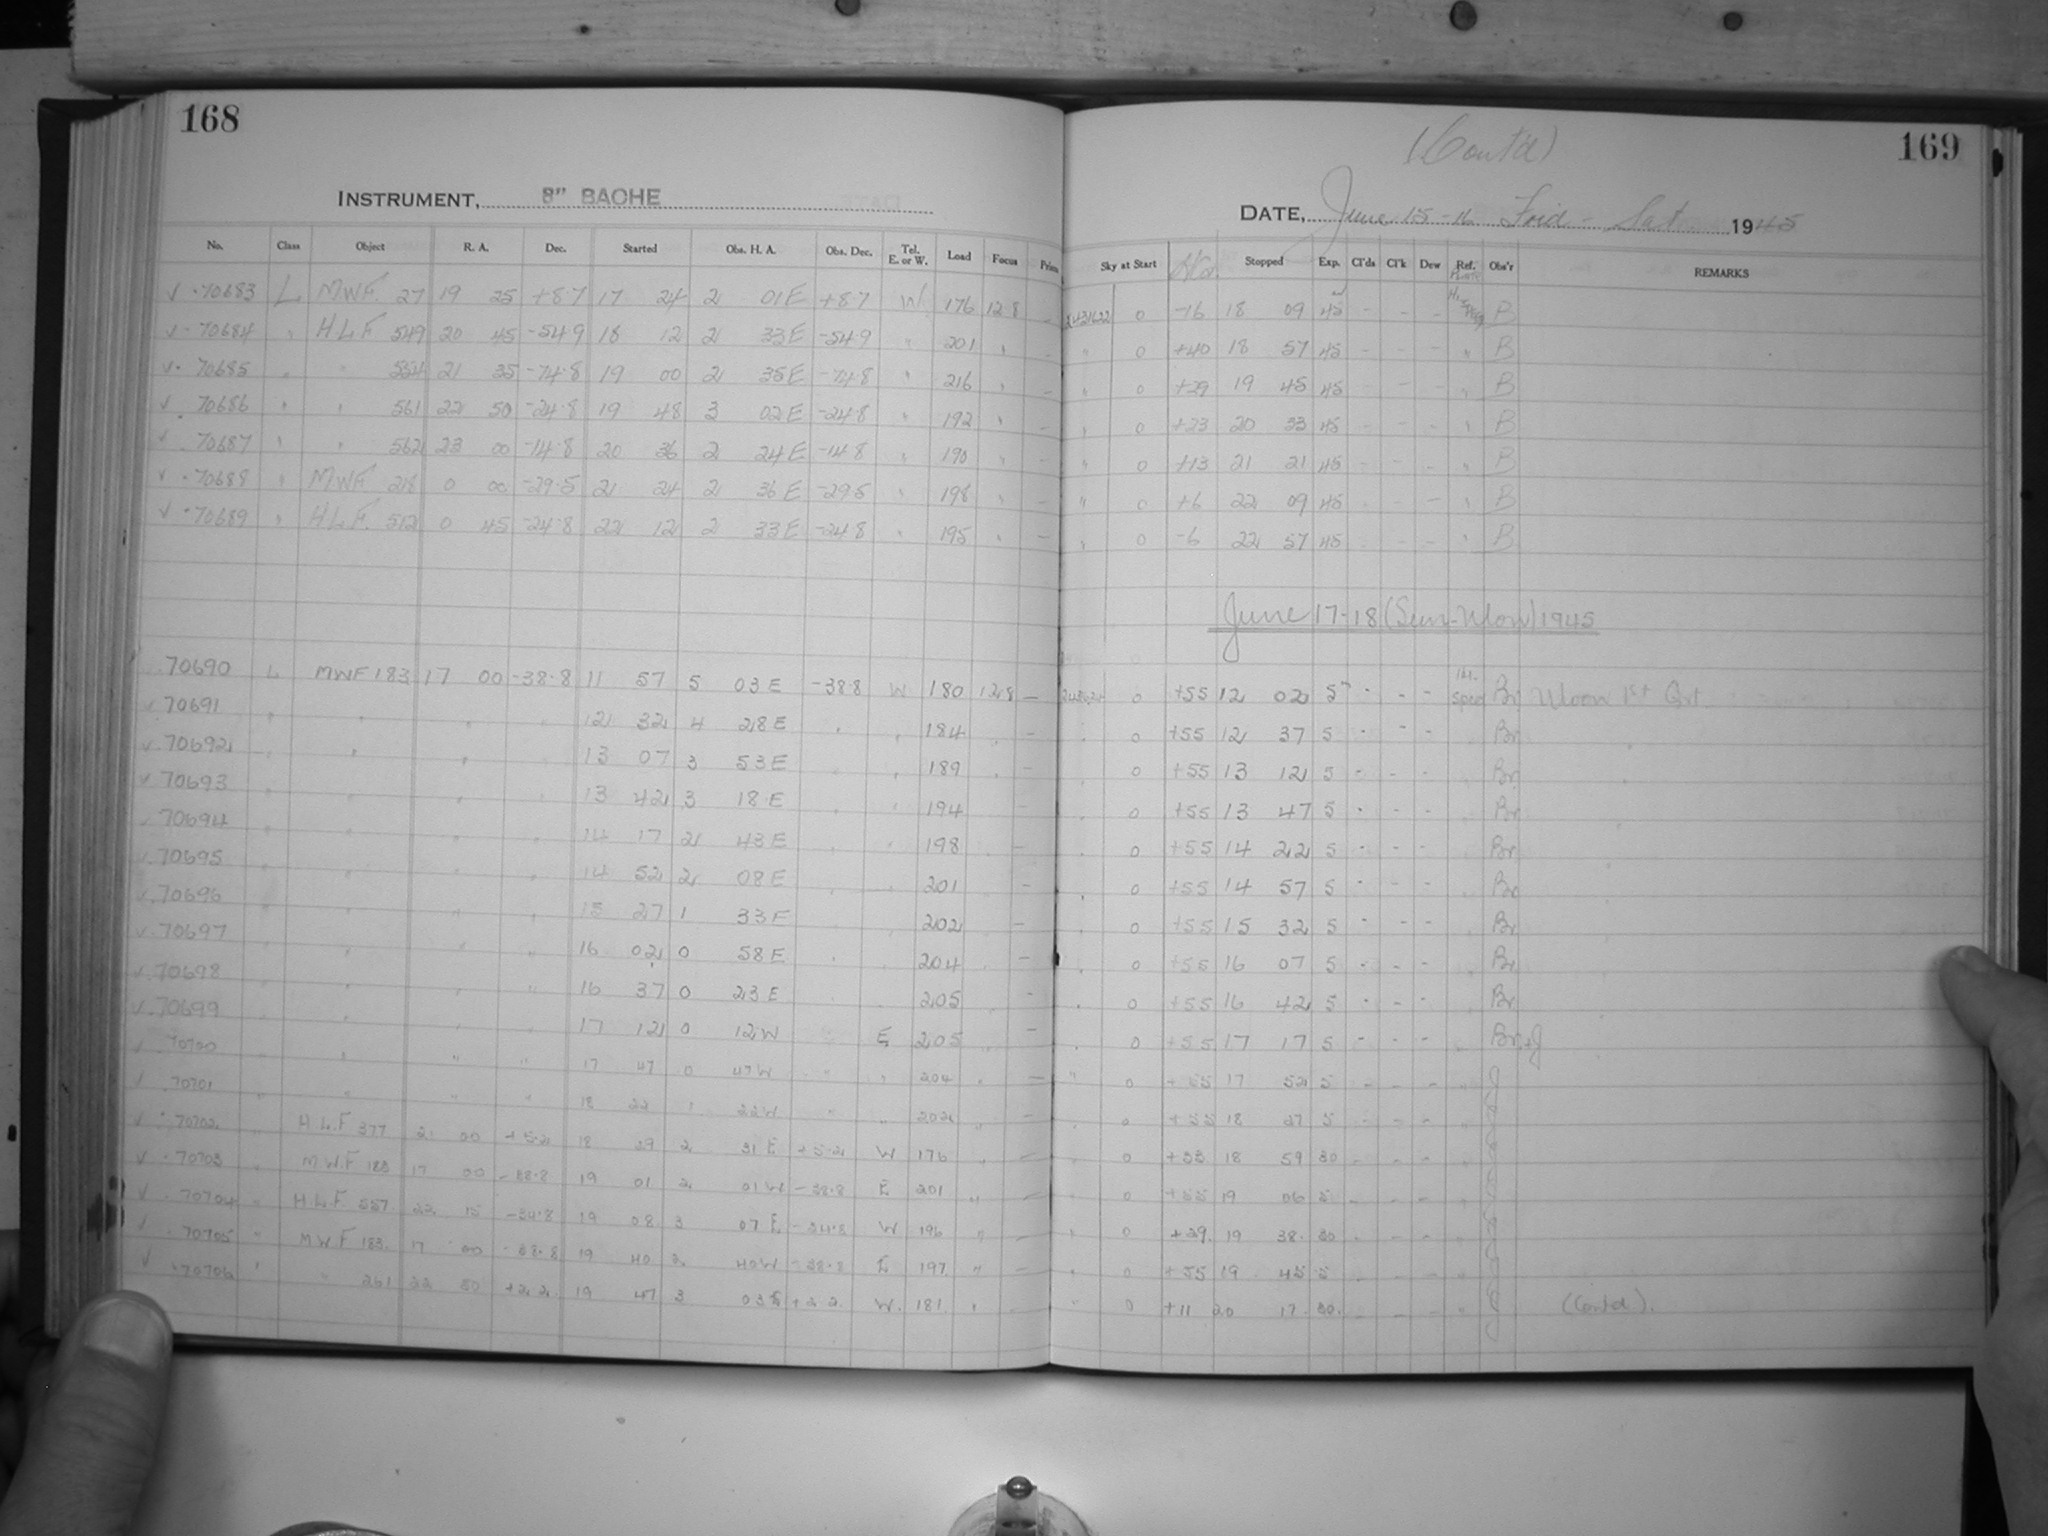 168
INSTRUMENT, 8" BACHE
No. Class Object R. A. Dec. Started Obs. H. A. Obs. Dec. Tel. E. or W. Load Focus Prism
70683 L MWF. 27 19 25 +8.7 17 24 2 01E +8.7 W 176 12.8
70684 " HLF 549 20 45 -54.9 18 12 2 33E -54.9 " 201 "
70685 " " 554 21 35 -74.8 19 00 2 35E -74.8 " 216 "
70686 " " 561 22 50 -24.8 19 48 3 02E -24.8 " 192 "
70687 " " 562 23 00 -14.8 20 36 2 24E -14.8 " 190 "
70688 " MWF 218 0 00 -29.5 21 24 2 36E -29.5 " 198 "
70689 " HLF. 512 0 45 -24.8 22 12 2 33E -24.8 " 195 "
70690 L MWF 183 17 00 -38.8 11 57 5 03E -38.8 W 180 12.8 -
70691 " " " " 12 32 4 28E " " 184 " -
70692 " " " " 13 07 3 53E " " 189 " -
70693 " " " " 13 42 3 18E " " 194 -
70694 " " " " 14 17 2 43E " " 198 -
70695 " " " " 14 52 2 08E " " 201 -
70696 " " " " 15 27 1 33E 202 -
70697 " " " " 16 02 0 58E 204 -
70698 " " " " 16 37 0 23E 205 -
70699 " " " " 17 12 0 12W E 205 -
70700 " " " " 17 47 0 47W " " 204 " -
70701 " " " " 18 22 1 22W " " 202 " -
70702 " HLF 377 21 00 +5.2 18 29 2 31E +5.2 W 176 " -
70703 " MWF 183 17 00 -38.8 19 01 2 01W -38.8 E 201 " -
70704 " HLF 557 22 15 -34.8 19 08 3 07E -34.8 W 196 " -
70705 " MWF 183. 17 00 -38.8 19 40 2 40W -38.8 E 197 " -
70706 " " 261 22 50 +2.2 19 47 3 03E +2.2 W. 181 " -
(Cont'd)
169
DATE, June 15-16 Frid - Sat 1945
Sky at Start Stopped Exp. Cl'ds Cl'k Dew Ref. Obs'r REMARKS
0 -16 18 09 45 - - - B
" 0 +40 18 57 45 - - - " B
" 0 +29 19 45 45 - - - " B
" 0 +23 20 33 45 - - - " B
" 0 +13 21 21 45 - - - " B
" 0 +6 22 09 45 - - - " B
" 0 -6 22 57 45 - - - " B
June 17-18 (Sun-Mon) 1945
0 +55 12 02 5 - - - Br Moon 1st Qrt.
" 0 +55 12 37 5 - - - Br
" 0 +55 13 12 5 - - - Br
" 0 +55 13 47 5 - - - Br
" 0 +55 14 22 5 - - - Br
" 0 +55 14 57 5 - - - Br
" 0 +55 15 32 5 - - - Br
" 0 +55 16 07 5 - - - Br
" 0 +55 16 42 5 - - - Br
" 0 +55 17 17 5 - - - Br+J
" 0 +55 17 52 5 - - - " J
" 0 +55 18 27 5 - - - " J
" 0 +33 18 59 30 - - - " J
" 0 +55 19 06 5 - - - " J
" 0 +29. 19 38. 30 - - - " J
" 0 +55 19 45 5 - - - " J
" 0 +11 20 17. 30. - - - " J (Contd.).